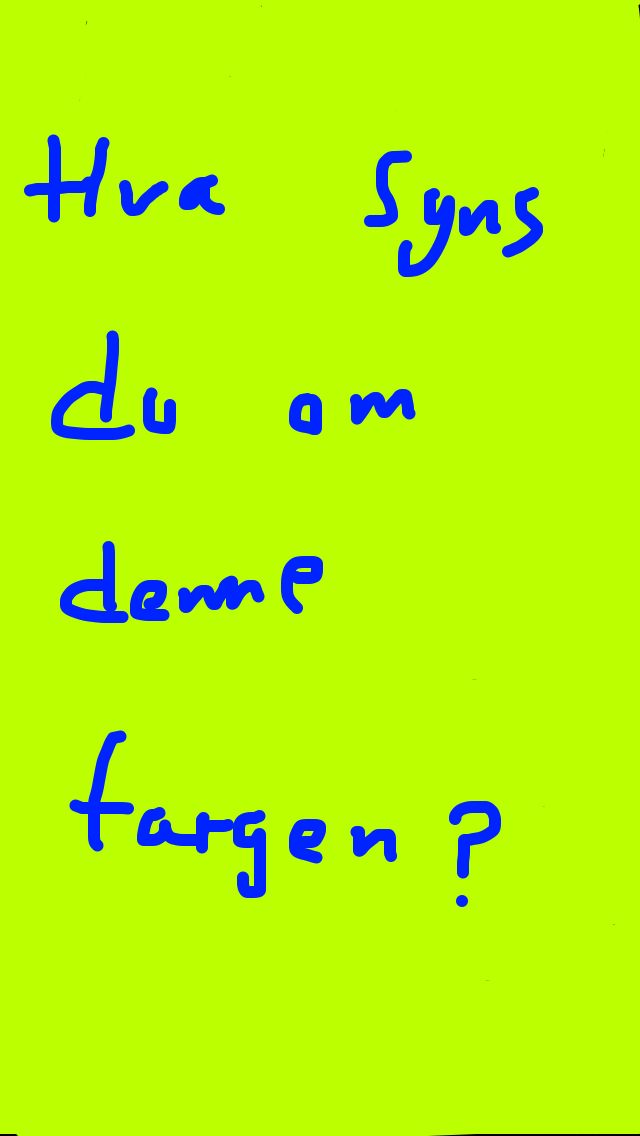 Hva Syns
du om
denne
fargen?